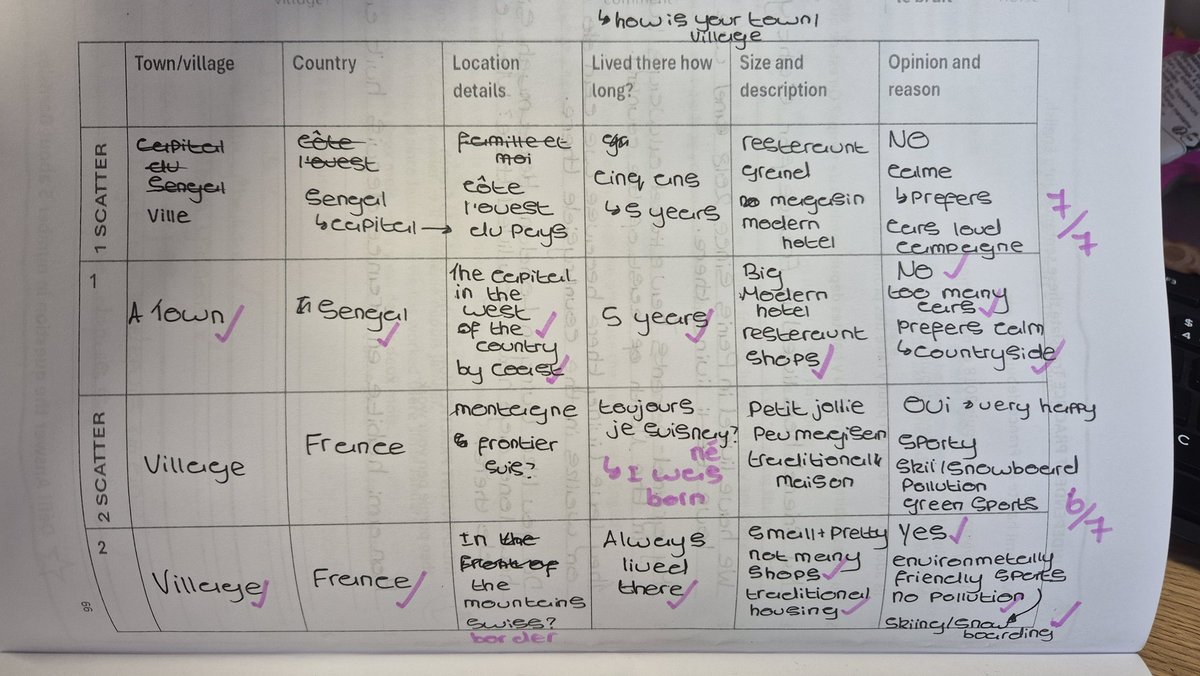 ↳ how is your town/
village
Town/village
Country
Location
details
Lived there how
long?
Size and
description
Opinion and
reason
1 SCATTER
Capital
du
Sengal
Ville
côte
l'ouest
Sengal
↳ capital →
famille et
moi
côte
l'ouest
du pays
ça
cinq ans
↳ 5 years
resteraunt
grand
magasin
modern
hotel
NO
calme
↳ prefers
cars loud
campaigne
7/7
1
A Town ✓
Sengal ✓
The capital
in the
west
of the ✓
country
by coast ✓
5 years ✓
Big
Modern
hotel
resteraunt
shops ✓
No ✓
too many
cars ✓
prefers calm
↳ countryside ✓
2 SCATTER
Village
France
montaigne
frontier
suis?
toujours
je suisnay?
né
↳ I was
born
Petit jollie
Peu magisan
traditional
maison
Oui very happy
sporty
skii/snowboard
Pollution
green sports
6/7
2
Village ✓
France ✓
In the
front of
the
mountains
swiss?
border
Always
lived
there ✓
small + pretty
not many
shops ✓
traditional
housing ✓
Yes ✓
environmetally
friendly sports
no pollution ✓
skiing/snow
boarding ✓
99